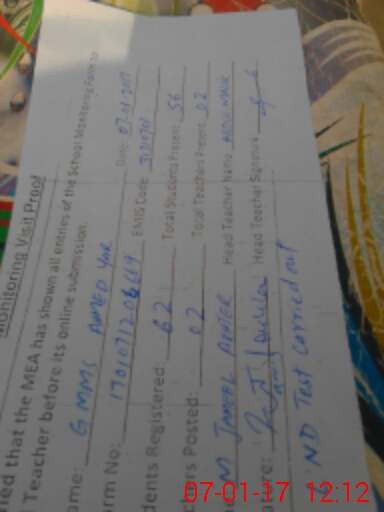 Monitoring Visit Proof
ied that the MEA has shown all entries of the School Monitoring Form to
Teacher before its online submission.
ame: G MMS AHMED YAR Date: 07-01-2017
rm No: 17010712 06669 EMIS Code:
dents Registered: 62 Total Students Present: 56
ers Posted: 02 Total Teachers Present: 02
M JAMEEL Head Teacher Name: ABDUL MALIK
ature: Head Teacher Signature:
ND Test Carried out
07-01-17 12:12